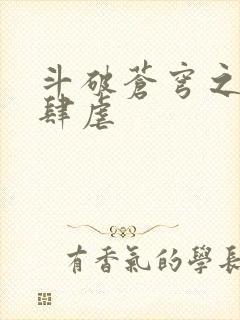 斗破蒼穹之
肆虐
有香氣的學長